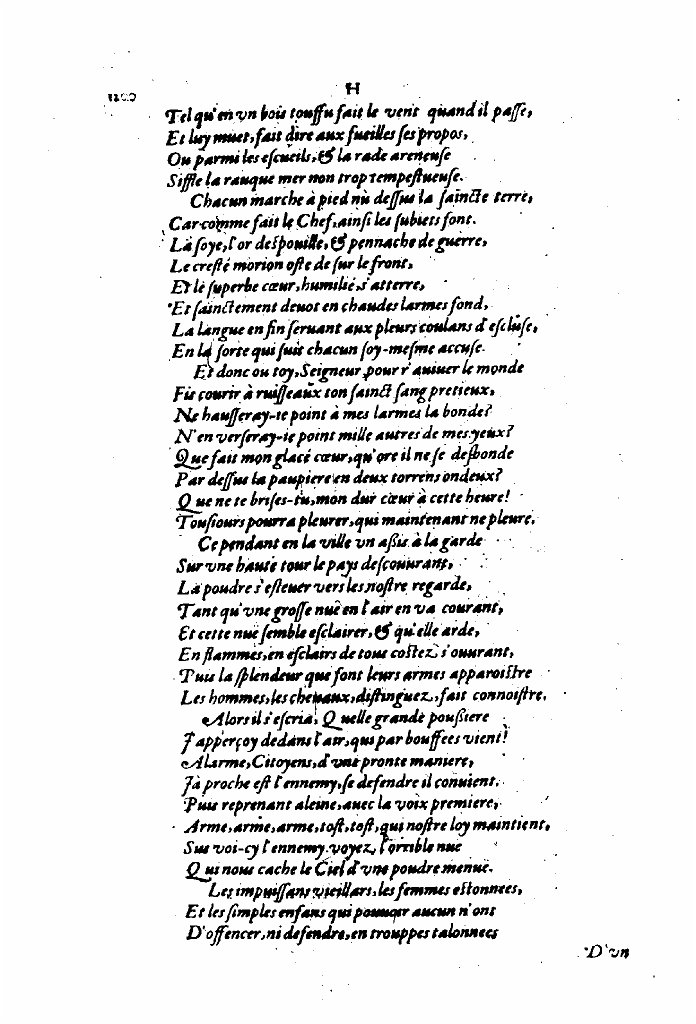 H
Tel qu'en vn bois touffu fait le vent quand il passe,
Et luy muet, fait dire aux fueilles ses propos,
Ou parmi les escueils, & la rade areneuse
Siffle la rauque mer non trop tempestueuse.
Chacun marche à pied nù dessus la saincte terre,
Car comme fait le Chef, ainsi les subiets font.
Là soye, l'or despouille, & pennache de guerre,
Le cresté morion oste de sur le front,
Et le superbe cœur, humilié, s'atterre,
Et sainctement deuot en chaudes larmes fond,
La langue en fin seruant aux pleurs coulans d'escluse,
En la sorte qui suit chacun soy-mesme accuse.
Et donc ou toy, Seigneur pour r'auiuer le monde
Fis courir à ruisseaux ton sainct sang pretieux,
Ne hausseray-ie point à mes larmes la bonde?
N'en verseray-ie point mille autres de mes yeux?
Que fait mon glacé cœur, qu'ore il ne se desbonde
Par dessus la paupiere en deux torrens ondeux?
Que ne te brises-tu, mon dur cœur à cette heure!
Tousiours pourra pleurer, qui maintenant ne pleure.
Cependant en la ville vn assis à la garde
Sur vne haute tour le pays descouurant,
La poudre s'esleuer vers les nostre regarde,
Tant qu'vne grosse nuë en l'air en va courant,
Et cette nuë semble esclairer, & qu'elle arde,
En flammes, en esclairs de tous costez s'ouurant,
Puis la splendeur que font leurs armes apparoistre
Les hommes, les cheuaux, distinguez, fait connoistre.
Alors il s'escria, Quelle grande poussiere
J'apperçoy dedans l'air, qui par bouffees vient!
Alarme, Citoyens, d'vne pronte maniere,
Jà proche est l'ennemy, se defendre il conuient.
Puis reprenant aleine, auec la voix premiere,
Arme, arme, arme, tost, tost, qui nostre loy maintient,
Sus voi-cy l'ennemy voyez, l'orrible nue
Qui nous cache le Ciel d'vne poudre menuë.
Les impuissans vieillars, les femmes estonnees,
Et les simples enfans qui pouuoir aucun n'ont
D'offencer, ni defendre, en trouppes talonnees
D'vn